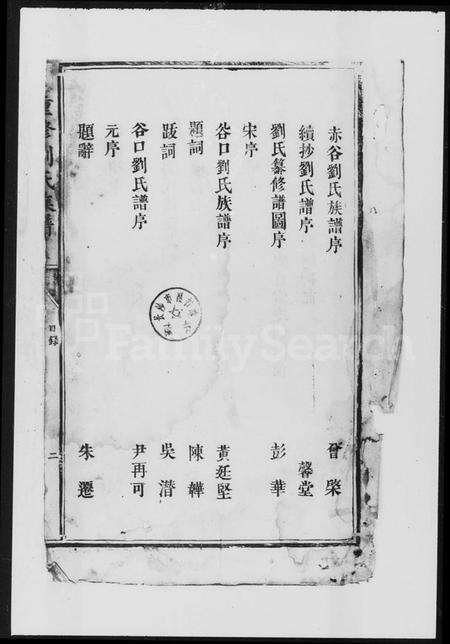 赤谷劉氏族譜序 曾棨
續抄劉氏譜序 馨堂
劉氏纂修譜圖序 彭華
宋序
谷口劉氏族譜序 黃廷堅
題詞 陳韡
跋詞 吳潛
谷口劉氏譜序 尹再可
元序
題辭 朱遷
劉氏族譜
目錄
二
FamilySearch